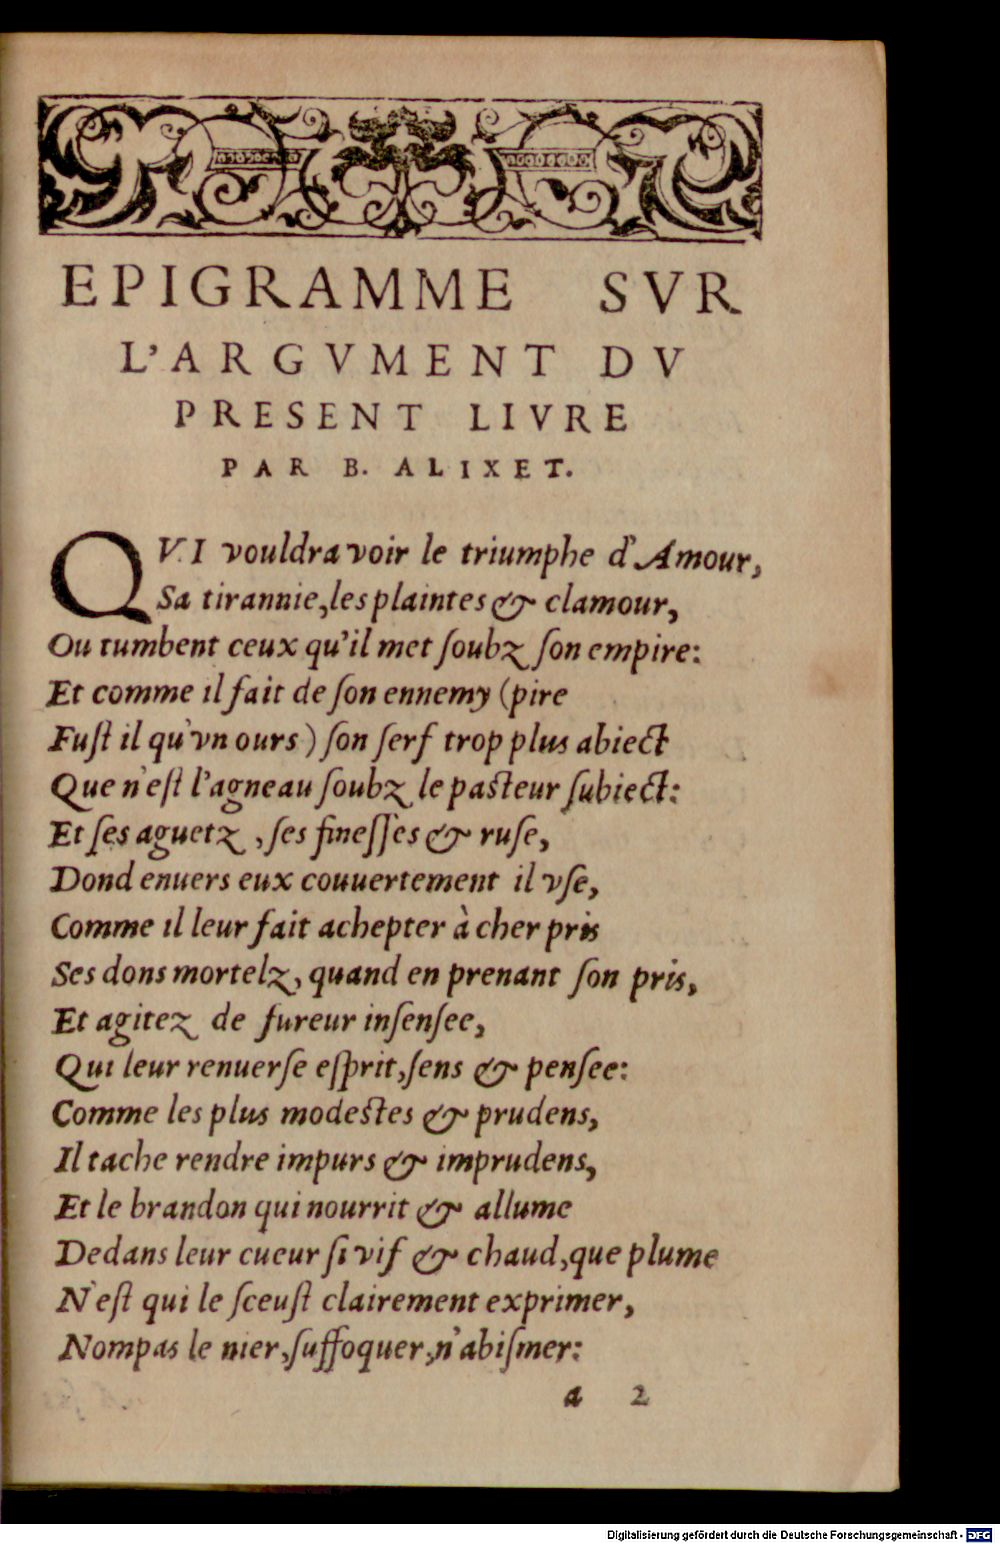 EPIGRAMME SVR
L'ARGVMENT DV
PRESENT LIVRE
PAR B. ALIXET.
QVI vouldra voir le triumphe d'Amour,
Sa tirannie, les plaintes & clamour,
Ou tumbent ceux qu'il met ſoubz ſon empire:
Et comme il fait de ſon ennemy (pire
Fuſt il qu'vn ours) ſon ſerf trop plus abiect
Que n'eſt l'agneau ſoubz le paſteur ſubiect:
Et ſes aguetz, ſes fineſſes & ruſe,
Dond enuers eux couuertement il vſe,
Comme il leur fait achepter à cher pris
Ses dons mortelz, quand en prenant ſon pris,
Et agitez de fureur inſenſee,
Qui leur renuerſe eſprit, ſens & penſee:
Comme les plus modeſtes & prudens,
Il tache rendre impurs & imprudens,
Et le brandon qui nourrit & allume
Dedans leur cueur ſi vif & chaud, que plume
N'eſt qui le ſceuſt clairement exprimer,
Nompas le nier, ſuffoquer, n'abiſmer:
a 2
Digitalisierung gefördert durch die Deutsche Forschungsgemeinschaft - DFG